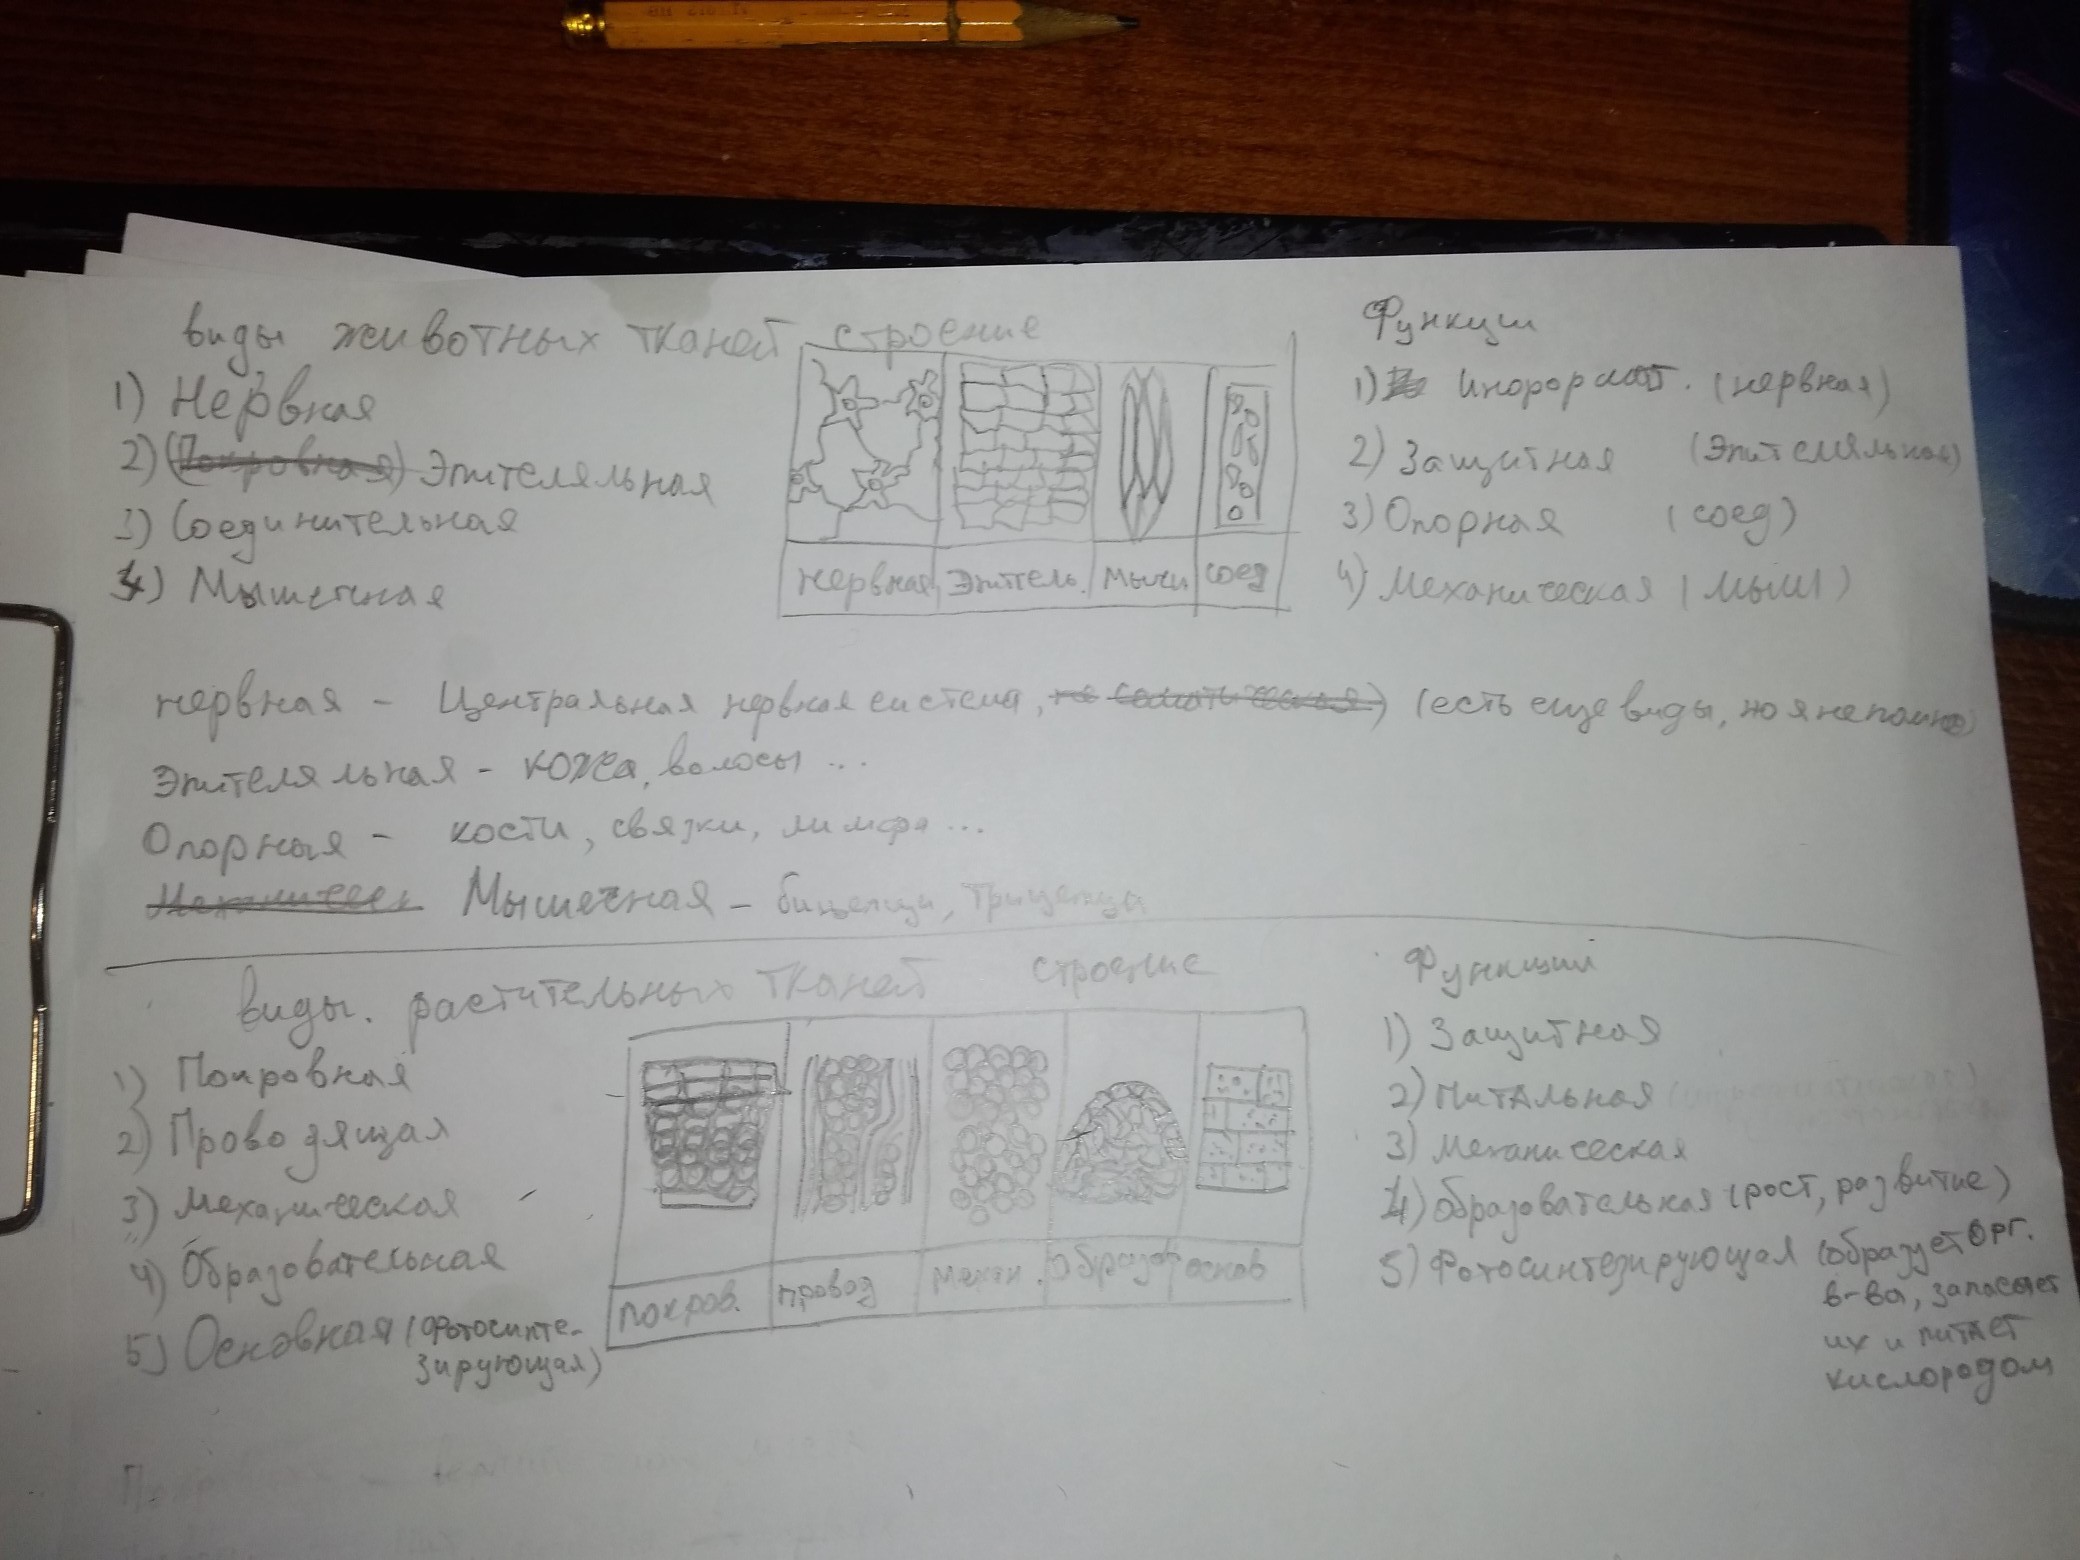 виды животных тканей строение Функции
1) Нервная
2) (Покровная) Эпителяльная
3) Соединительная
4) Мышечная
нервная Эпитель. мышч соед
1) информат. (нервная)
2) Защитная (Эпителяльная)
3) Опорная (соед)
4) Механическая (мыш)
нервная - Центральная нервная система, (есть еще виды, но я не помню)
Эпителяльная - кожа, волосы ...
Опорная - кости, связки, лимфа ...
Механическ Мышечная - бицепци, трицепца
виды. растительных тканей строение Функции
1) Покровная
2) Проводящая
3) Механическая
4) Образовательная
5) Основная (Фотосинте-
зирующая)
покров. провод механ. образов основ
1) Защитная
2) Питальная
3) Механическая
4) Образовательная (рост, развитие)
5) Фотосинтезирующая (образует орг.
в-ва, запасает
их и питает
кислородом